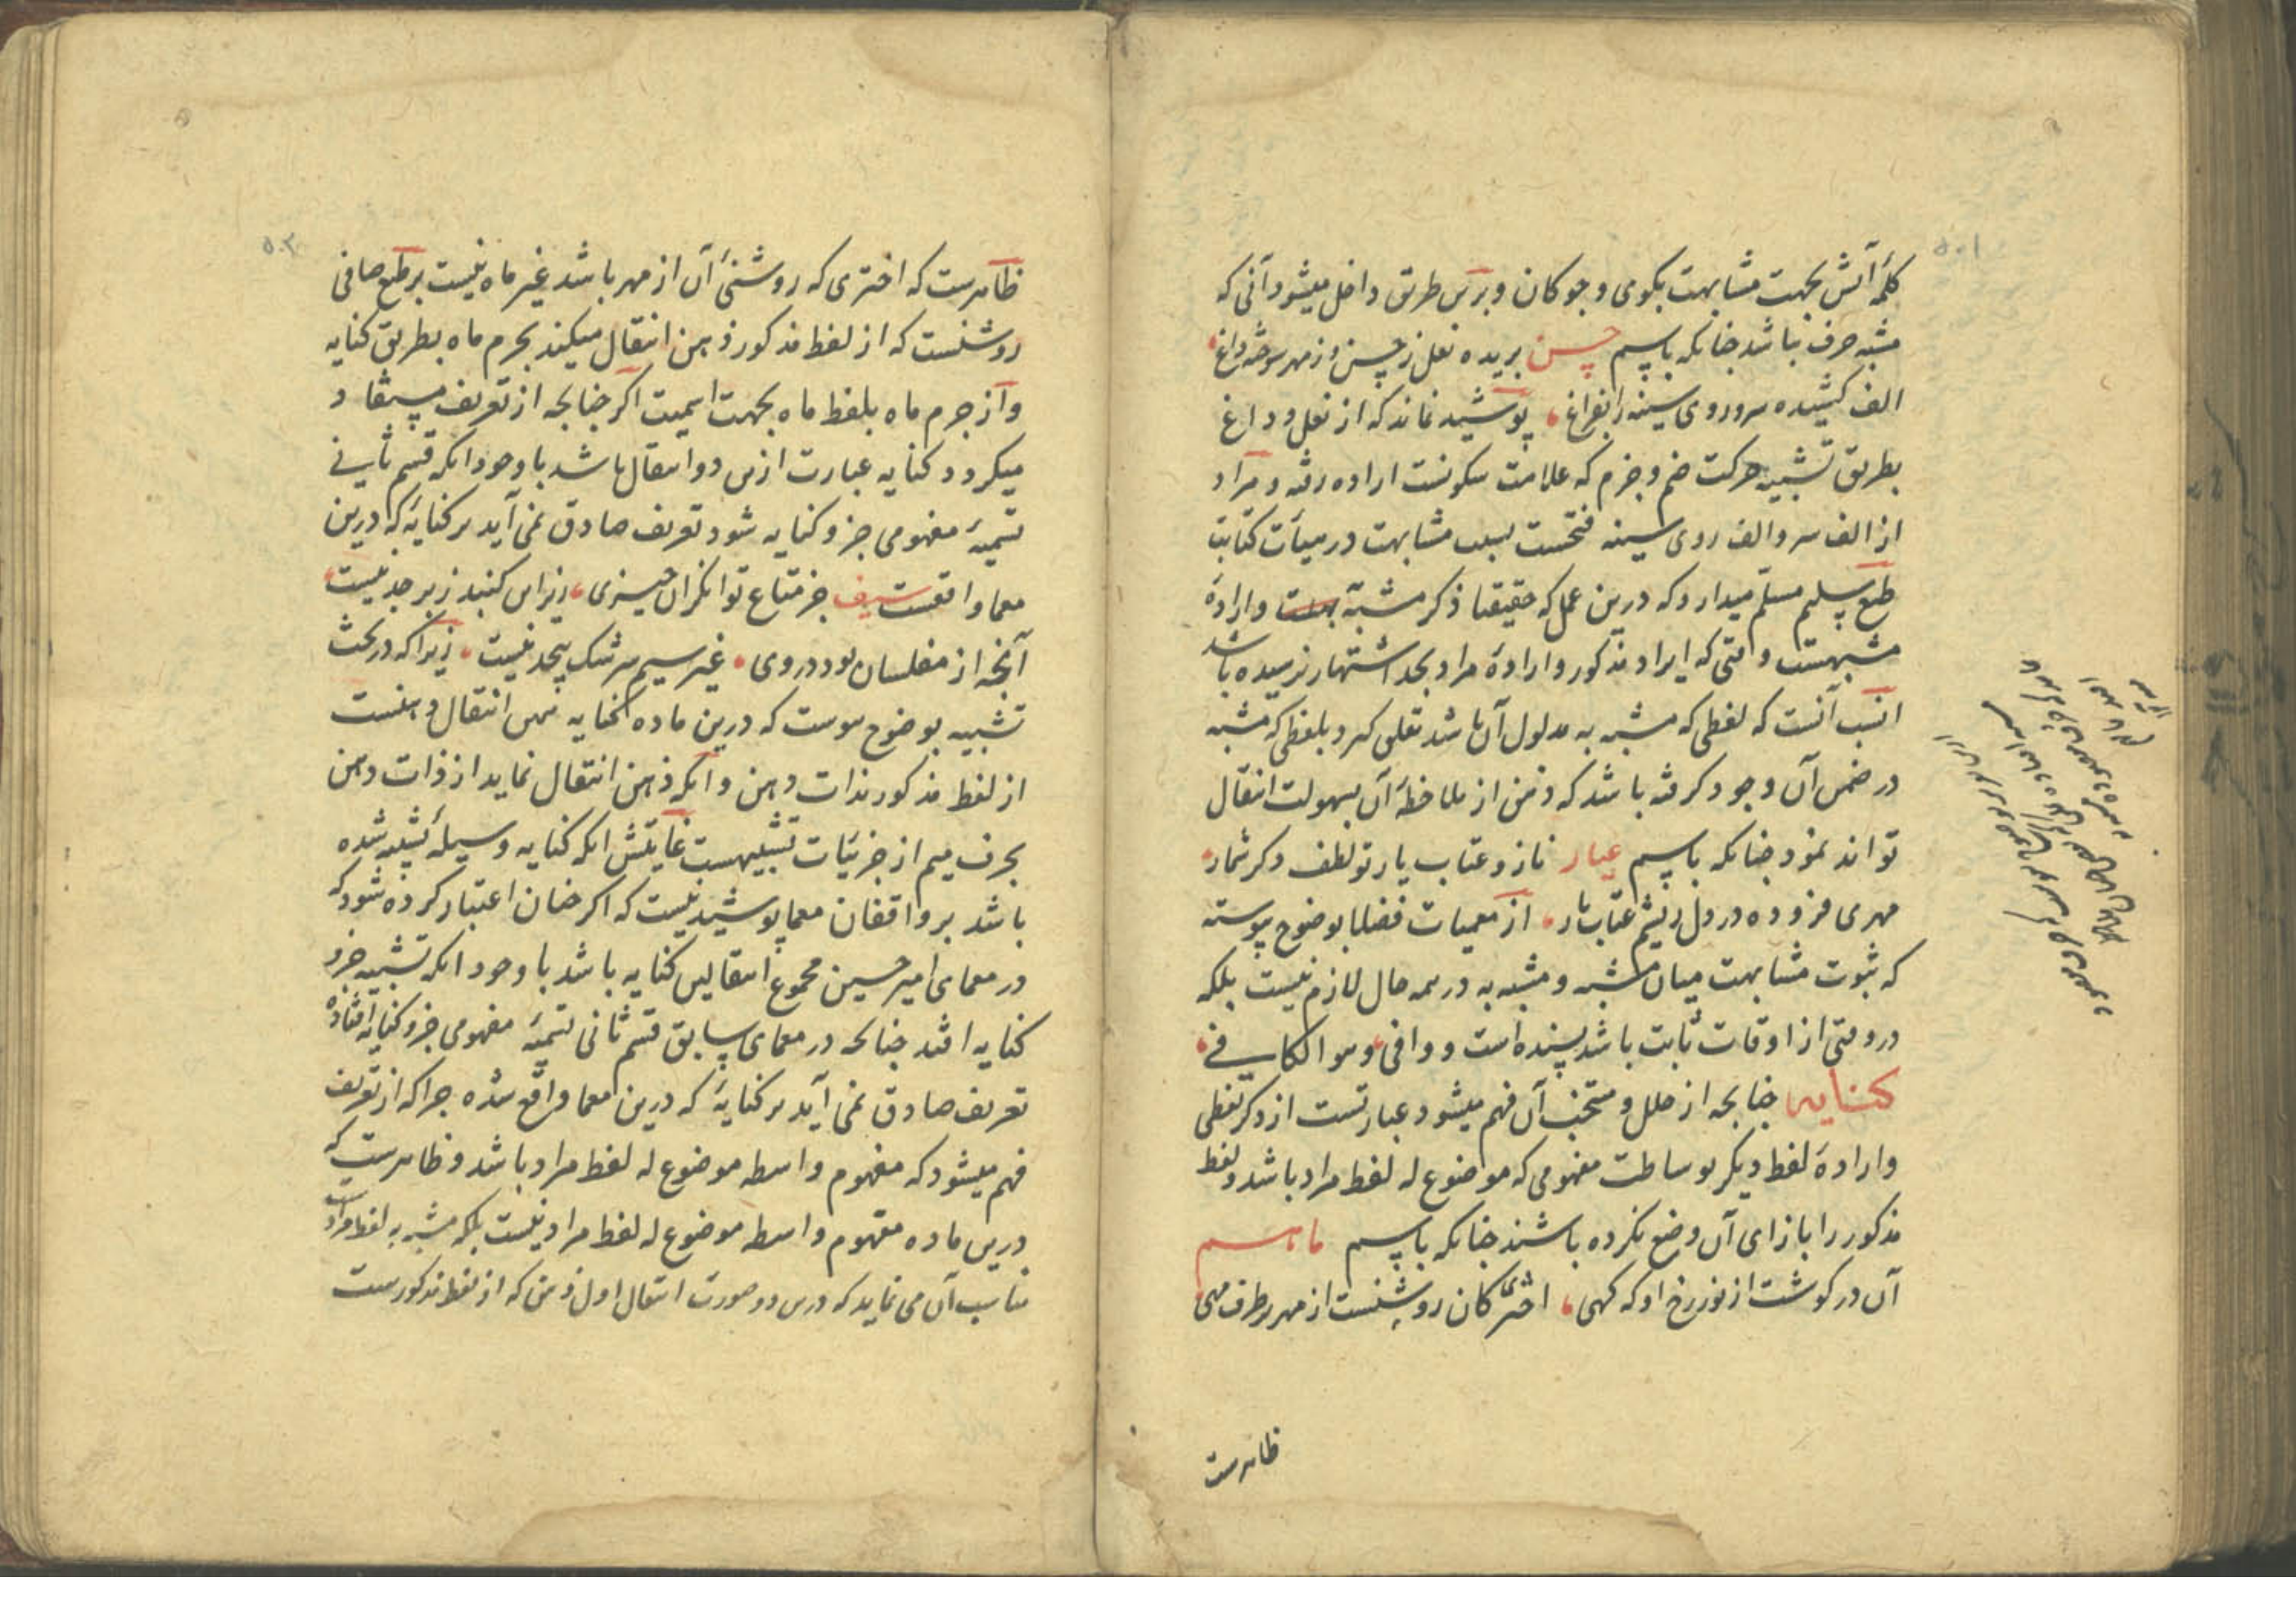 كلمهٔ آتش بجهت مشابهت بكوى و جوكان و برين طريق داخل ميشود آنى كه
مشبه حرف باشد جنانكه باسم حسن بريده نعل ز حسن و ز مهر سوخته داغ
الف كشيده سر و روى سينه را بفراغ پوشيد نماند كه از نعل و داغ
بطريق تشبيه حركت ضم و جزم كه علامت سكونست اراده رفته و مراد
از الف سر و الف روى سينه فتحست بسبب مشابهت در هيأت كتابت
طبع سليم مسلم ميدارد كه درين عمل كه حقيقتا ذكر مشبه به است و ارادهٔ
مشبهست وقتى كه ايراد مذكور و ارادهٔ مراد بحد اشتهار نرسيده باشد
انسب آنست كه لفظى كه مشبه به مدلول آن باشد تعلق كيرد بلفظى كه مشبه
در ضمن آن وجود كرفته باشد كه ذهن از ملاحظهٔ آن بسهولت انتقال
تواند نمود جنانكه باسم عيار ناز و عتاب يار تو لطف و كر شمار
مهرى فزوده در دل ريشم عتاب يار از معميات فضلا بوضوح پيوسته
كه ثبوت مشابهت ميان مشبه و مشبه به در همه حال لازم نيست بلكه
در وقتى از اوقات ثابت باشد پسنده است و وافى و هو الكافى
كنايه جنانجه از حلل و منتخب آن فهم ميشود عبارتست از ذكر لفظى
و ارادهٔ لفظ ديكر بوساطت مفهومى كه موضوع له لفظ مراد باشد و لفظ
مذكور را بازاى آن وضع نكرده باشند جنانكه باسم ماه
آن در كوشت از نور رخ او كه كهى اخترى كان روشنست از مهر بر طرف مهى
ظاهرست
ظاهرست كه اخترى كه روشنئ آن از مهر باشد غير ماه نيست بر طبع صافى
روشنست كه از لفظ مذكور ذهن انتقال ميكند بجرم ماه بطريق كنايه
و از جرم ماه بلفظ ماه بجهت اسميت اكر جنانجه از تعريف مستفاد
ميكردد كنايه عبارت ازين دو انتقال باشد با وجود انكه قسم ثانى
تسميهٔ مفهومى جزو كنايه شود تعريف صادق نمى آيد بر كنايهٔ كه درين
معما واقعست سيف جز متاع توانكران جيزى زير اين كنبد زبرجد نيست
آنجه از مفلسان بود در وى غير سيم سرشك بيحد نيست زيرا كه در بحث
تشبيه بوضوح پيوست كه درين ماده كنايه همين انتقال ذهنست
از لفظ مذكور بذات دهن و انكه ذهن انتقال نمايد از ذات دهن
بحرف ميم از جزئيات تشبيهست غايتش انكه كنايه وسيلهٔ تشبيه شده
باشد بر واقفان معما پوشيد نيست كه اكر جنان اعتبار كرده شود كه
در معماى امير حسين مجموع انتقالين كنايه باشد با وجود انكه تشبيه جزو
كنايه افتد جنانجه در معماى سابق قسم ثانى تسميهٔ مفهومى جزو كنايه افتاده
تعريف صادق نمى آيد بر كنايهٔ كه درين معما واقع شده جرا كه از تعريف
فهم ميشود كه مفهوم واسطه موضوع له لفظ مراد باشد و ظاهرست كه
درين ماده مفهوم واسطه موضوع له لفظ مراد نيست بلكه مشبه به لفظ مرادست
مناسب آن مى نمايد كه درين دو صورت انتقال اول ذهن كه از لفظ مذكورست